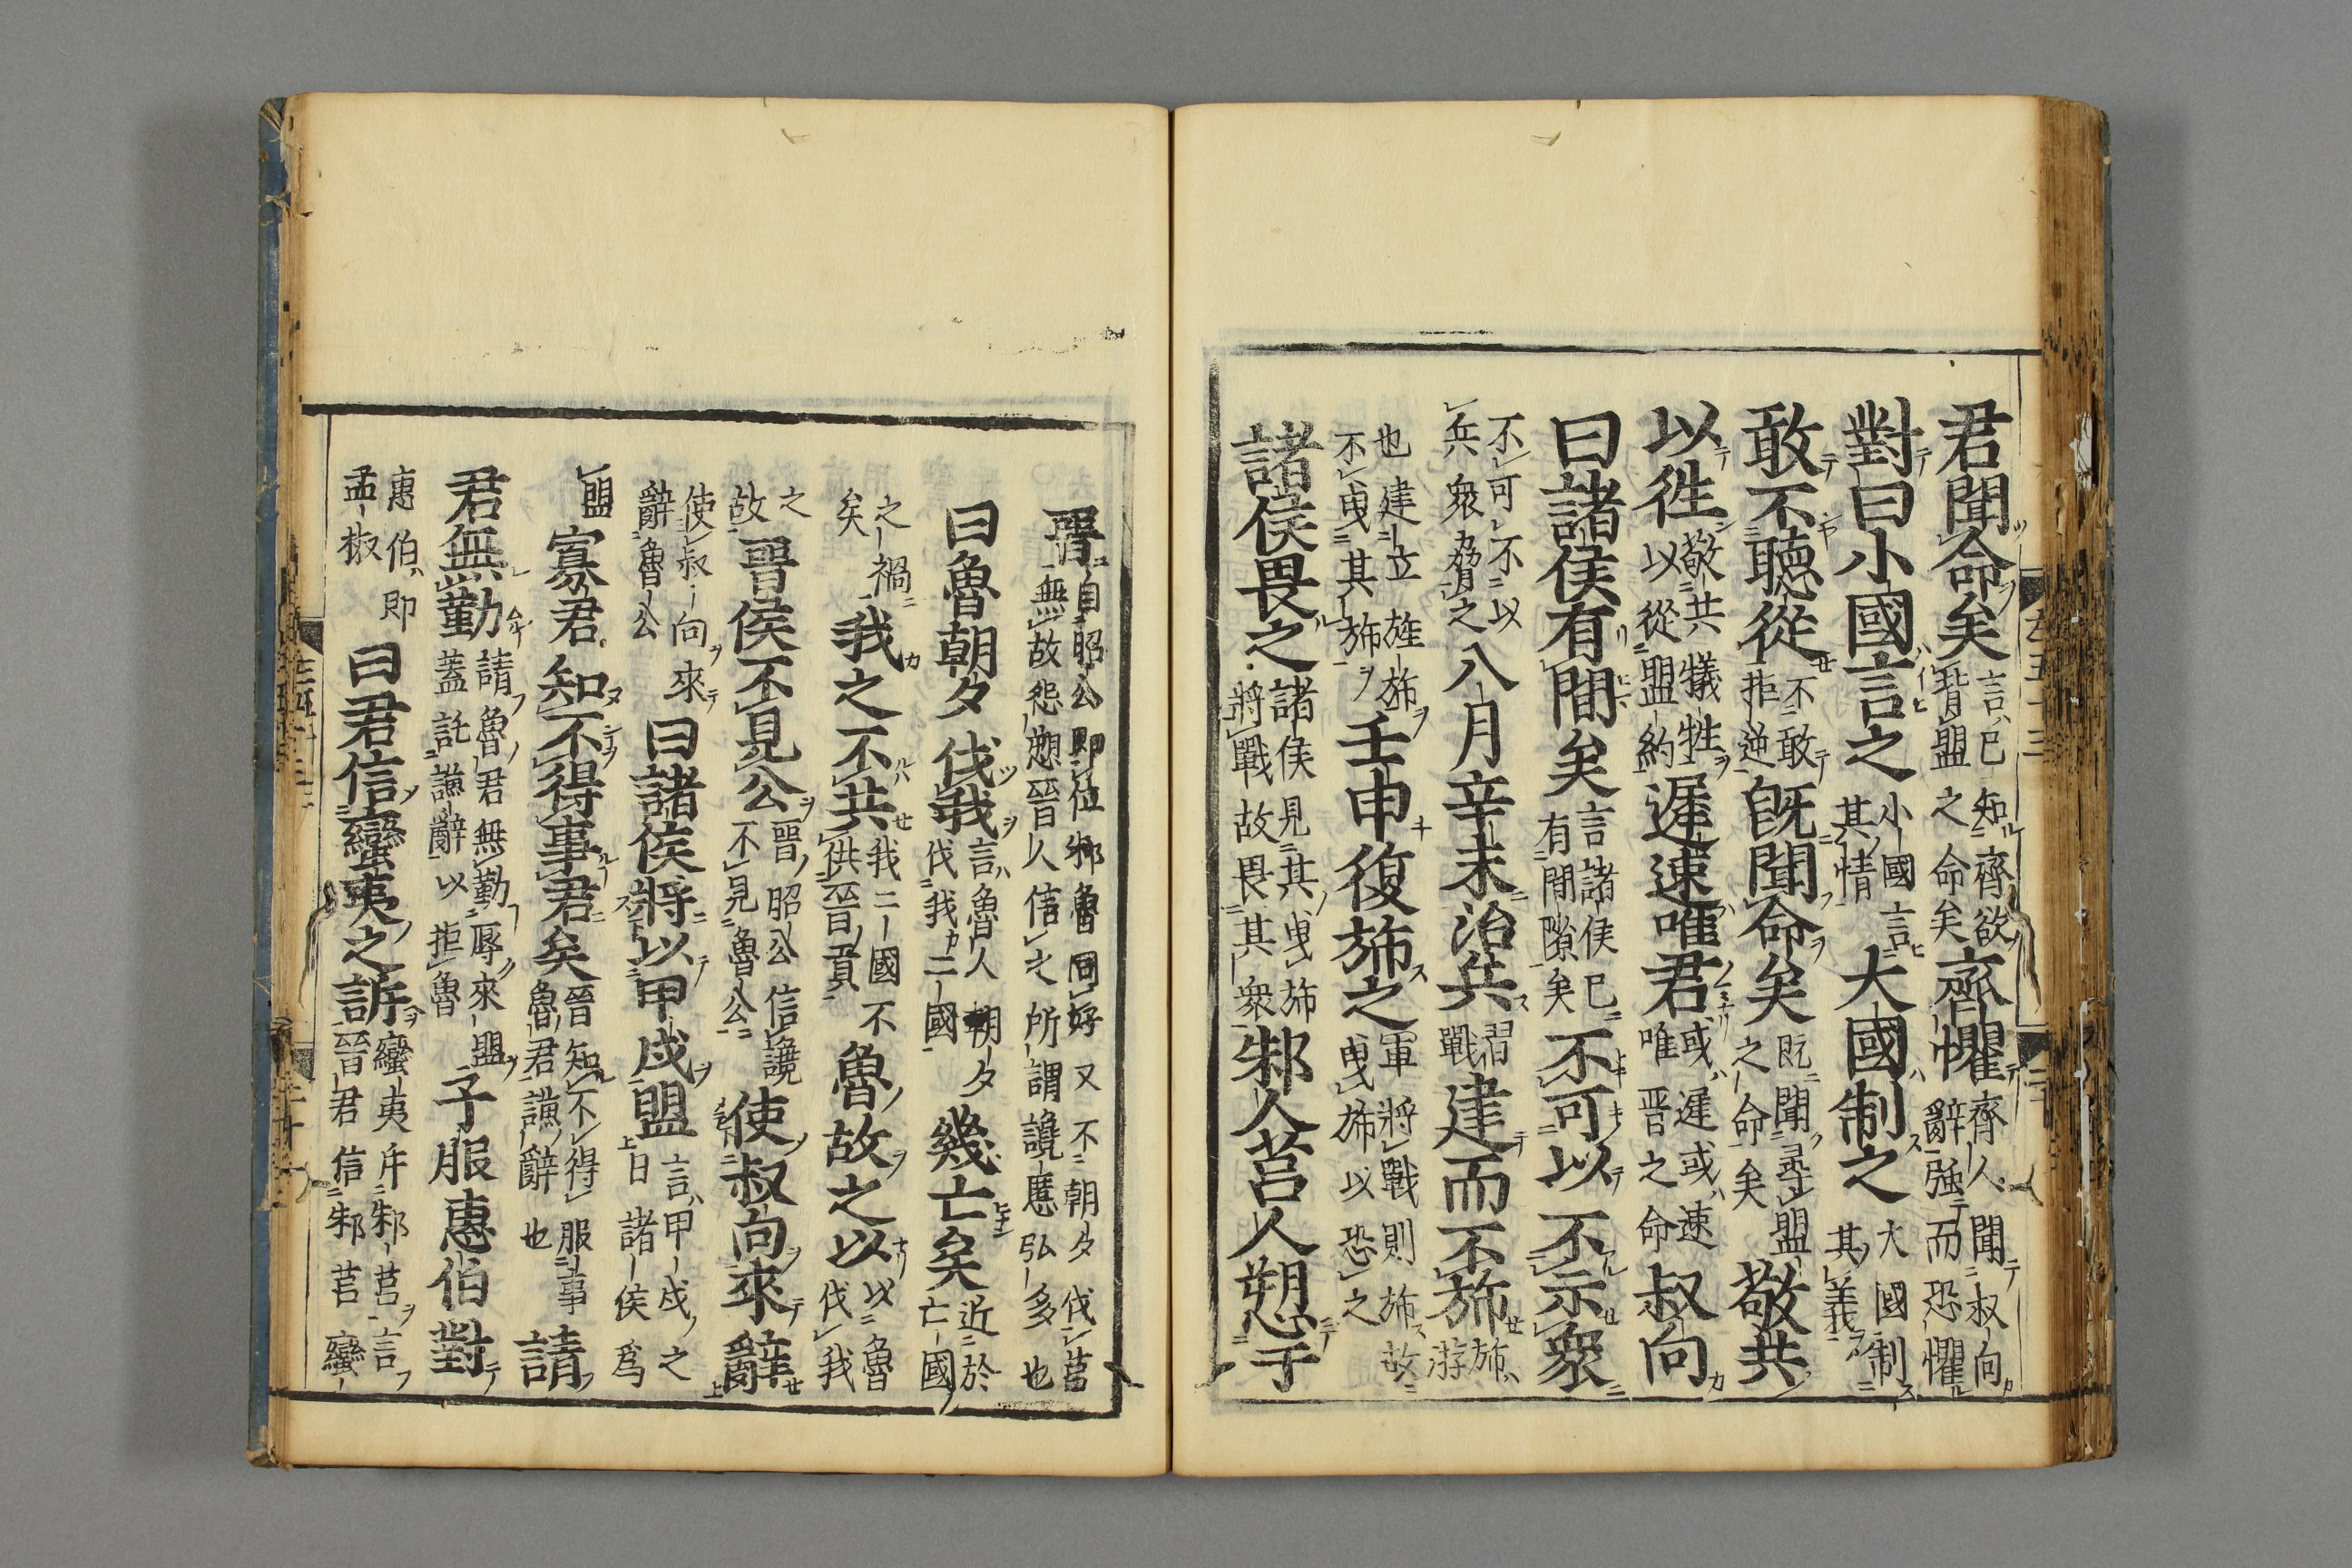 君聞命矣言已知齊欲背盟之命矣齊懼齊人聞叔向辭強而恐懼
對曰小國言之小國言其情大國制之大國制其義
敢不聽從不敢拒逆旣聞命矣既聞尋盟之命矣敬共
以徃敬共犧牲以從盟約遲速唯君或遲或速唯晋之命叔向
曰諸侯有間矣言諸侯已有間隙矣不可以不示衆
不可不以兵衆脅之八月辛未治兵習戰建而不旆旆游
也建立旌旆不曳其旆壬申復旆之軍將戰則旆故曳旆以恐之
諸侯畏之諸侯見其曳旆將戰故畏其衆邾人莒人愬于
晋自昭公即位邾魯同好又不朝夕伐莒無故怨愬晉人信之所謂讒慝弘多也
曰魯朝夕伐我言魯人朝夕伐我二國幾亡矣近於亡國
之禍矣我之不共我二國不供晋貢魯故之以以魯伐我
之故晋侯不見公晋昭公信讒不見魯公使叔向來辭
使叔向來辭魯公曰諸侯將以甲戌盟言甲戌之日諸侯爲
盟寡君知不得事君矣晉知不得服事魯君謙辭也請
君無勤請魯君無勤辱來盟蓋託謙辭以拒魯子服惠伯對
惠伯即孟椒曰君信蠻夷之訴蠻夷斥邾莒言晉君信邾莒蠻